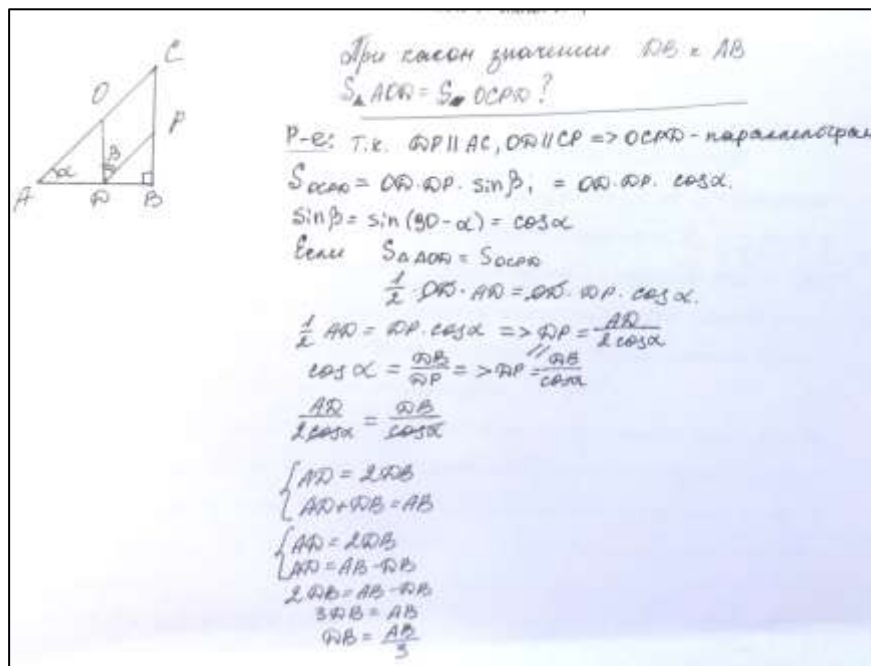 При каком значении DB к AB
S△ AOD = S OCPD?
Р-е: т.к. DP || AC, OD || CP => OCPD - параллелограм
S OCPD = OD · DP · sinβ; = OD · DP · cosα.
sinβ = sin(90-α) = cosα
Если S△AOD = S OCPD
1/2 · OD · AD = OD · DP · cosα.
1/2 AD = DP · cosα => DP = AD/2cosα
cosα = DB/DP => DP = DB/cosα
AD/2cosα = DB/cosα
{ AD = 2DB
AD + DB = AB
{ AD = 2DB
AD = AB - DB
2DB = AB - DB
3DB = AB
DB = AB/3
C
O
P
β
α
A
D
B